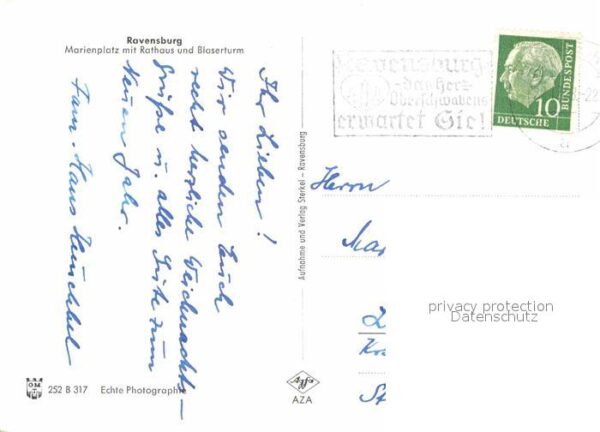 Ravensburg
Marienplatz mit Rathaus und Blaserturm
Ihr Lieben!
Wir senden Euch
recht herzliche Weihnachts-
grüße u. alles Gute zum
Neuen Jahr.
Fam. Hans
252 B 317 Echte Photographie
Aufnahme und Verlag Sterkel - Ravensburg
Agfa
AZA
Ravensburg
das Herz
Oberschwabens
erwartet Sie!
10
DEUTSCHE
BUNDESPOST
Herrn
privacy protection
Datenschutz